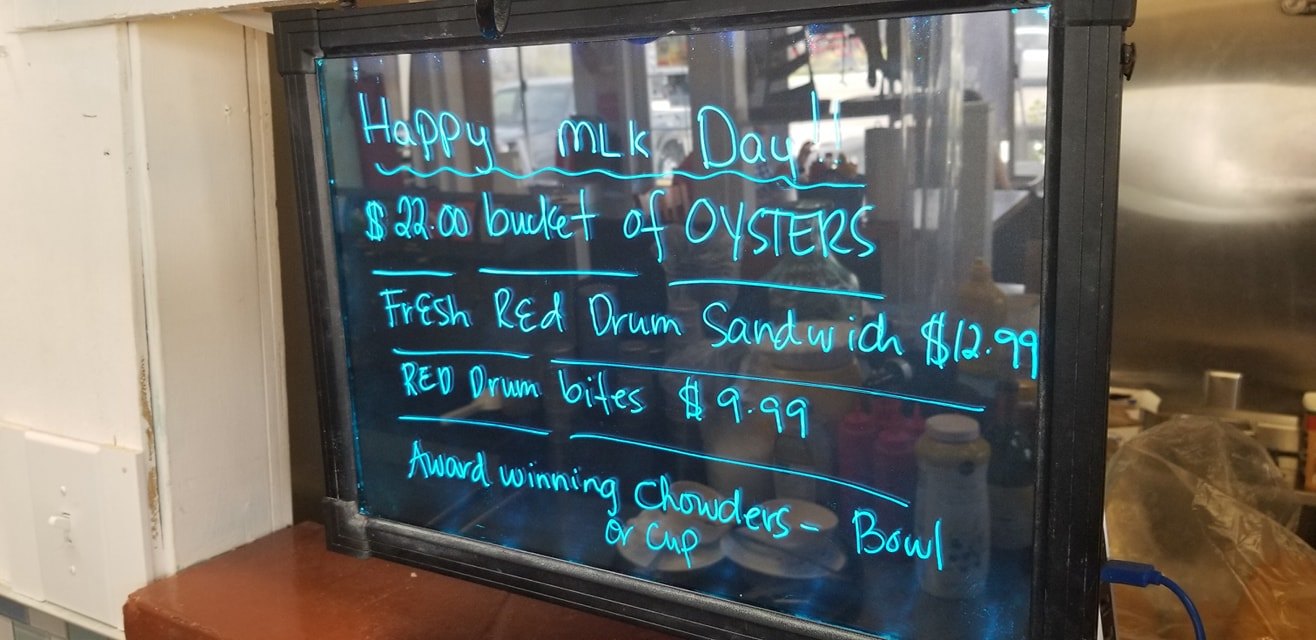 Happy MLK Day!!
$22.00 bucket of OYSTERS
Fresh Red Drum Sandwich $12.99
RED Drum bites $9.99
Award winning Chowders - Bowl
or Cup